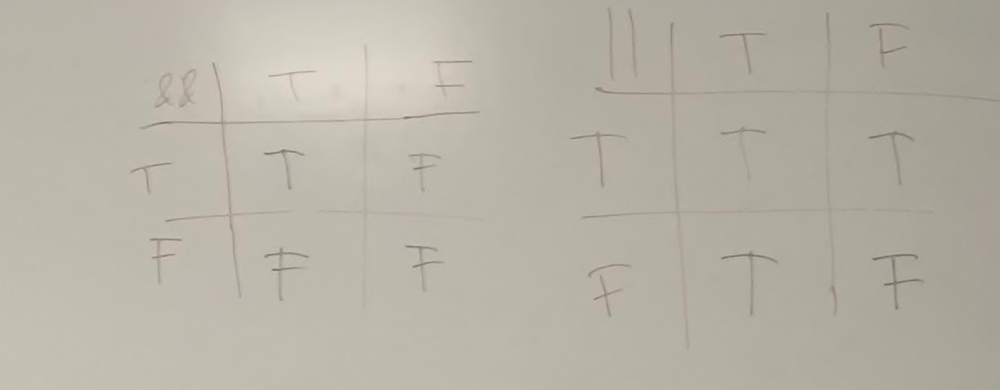 && T F
T T F
F F F
|| T F
T T T
F T F